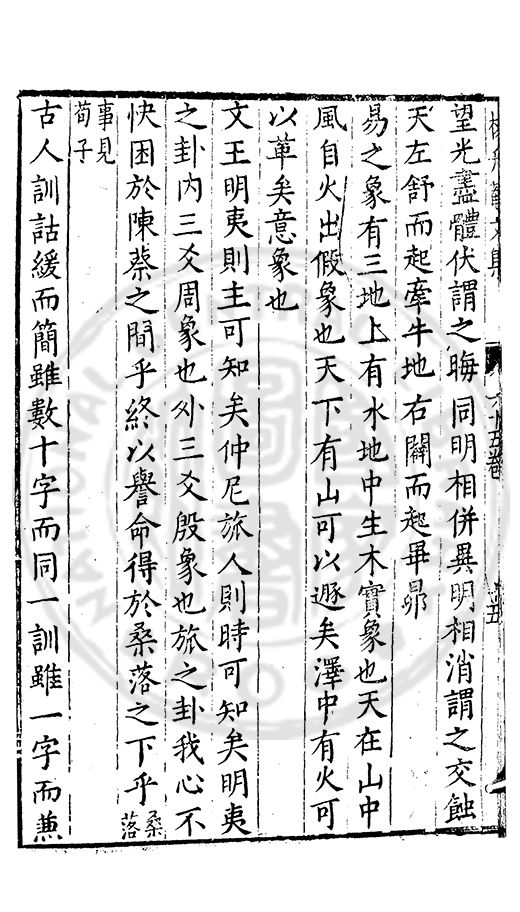 望光盡體伏謂之晦同明相併異明相消謂之交蝕
天左舒而起牽牛地右闢而起畢昴
易之象有三地上有水地中生木實象也天在山中
風自火出假象也天下有山可以遯矣澤中有火可
以革矣意象也
文王明夷則主可知矣仲尼旅人則時可知矣明夷
之卦内三爻周象也外三爻殷象也旅之卦我心不
快困於陳蔡之間乎終以譽命得於桑落之下乎桑落
事見荀子
古人訓詁緩而簡雖數十字而同一訓雖一字而兼